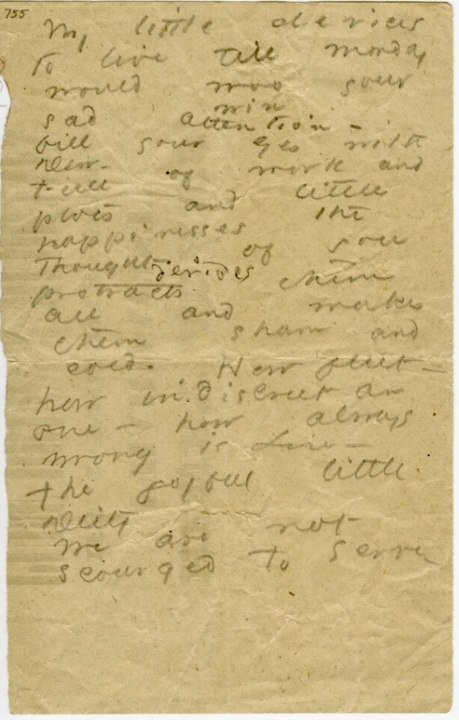 755
My little devices
to live till Monday
would woo your
win
sad attention –
fill your eyes with
dew –
full of work and
plots and little
happinesses the
thought of you
derides
protracts them
all and makes
them sham and
cold. How fleet –
how indiscreet an
one – how always
wrong is Love –
the joyful little
Deity
We are not
scourged to serve